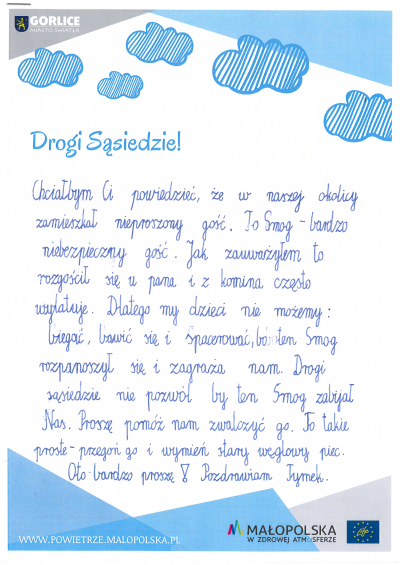 GORLICE
MIASTO ŚWIATŁA
Drogi Sąsiedzie!
Chciałbym Ci powiedzieć, że w naszej okolicy
zamieszkał nieproszony gość. To Smog - bardzo
niebezpieczny gość. Jak zauważyłem to
rozgościł się u pana i z komina często
wylatuje. Dlatego my dzieci nie możemy:
biegać, bawić się i spacerować, bo ten Smog
rozpanoszył się i zagraża nam. Drogi
sąsiedzie nie pozwól by ten Smog zabijał
Nas. Proszę pomóż nam zwalczyć go. To takie
proste - przegoń go i wymień stary węglowy piec.
Oto bardzo proszę! Pozdrawiam Tymek.
WWW.POWIETRZE.MALOPOLSKA.PL
MAŁOPOLSKA
W ZDROWEJ ATMOSFERZE